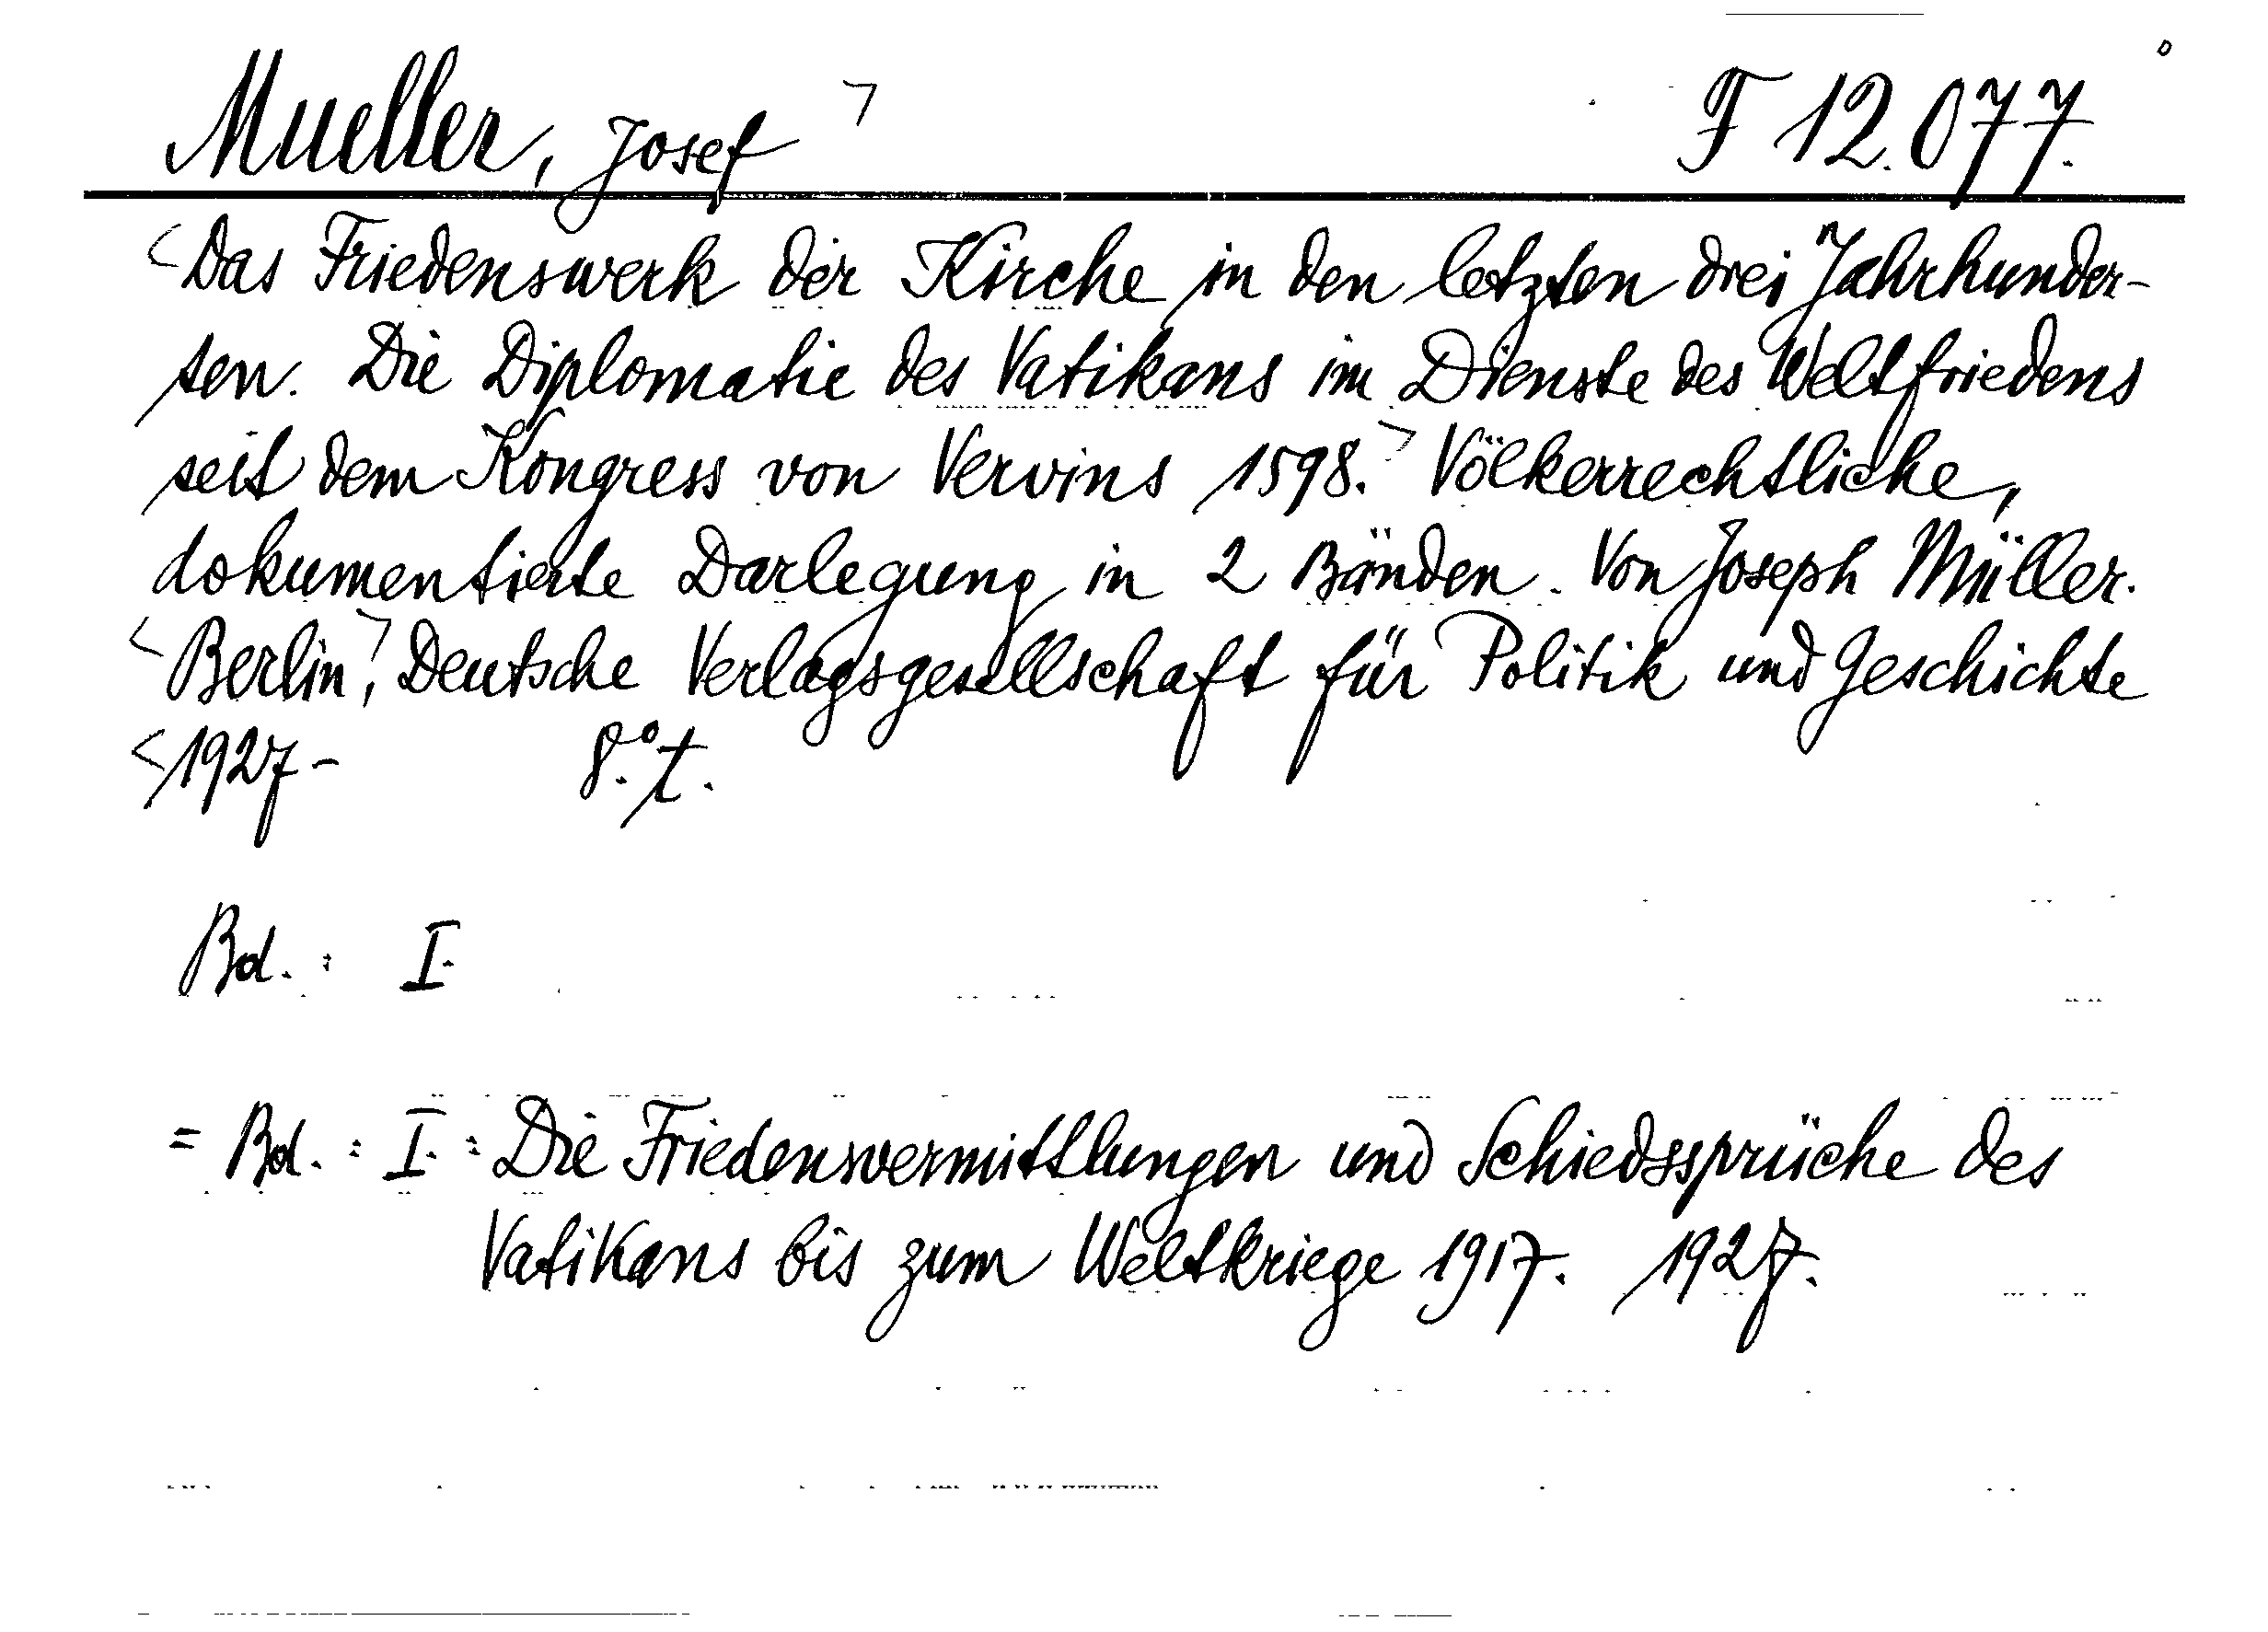 Mueller, Josef F 12.077.
Das Friedenswerk der Kirche in den letzten drei Jahrhunder-
ten. Die Diplomatie des Vatikans im Dienste des Weltfriedens
seit dem Kongress von Vervins 1598. Völkerrechtliche,
dokumentierte Darlegung in 2 Bänden. Von Joseph Müller.
Berlin, Deutsche Verlagsgesellschaft für Politik und Geschichte
1927- 8.° t.
Bd. : I.
= Bd. : I. : Die Friedensvermittlungen und Schiedssprüche des
Vatikans bis zum Weltkriege 1917. 1927.